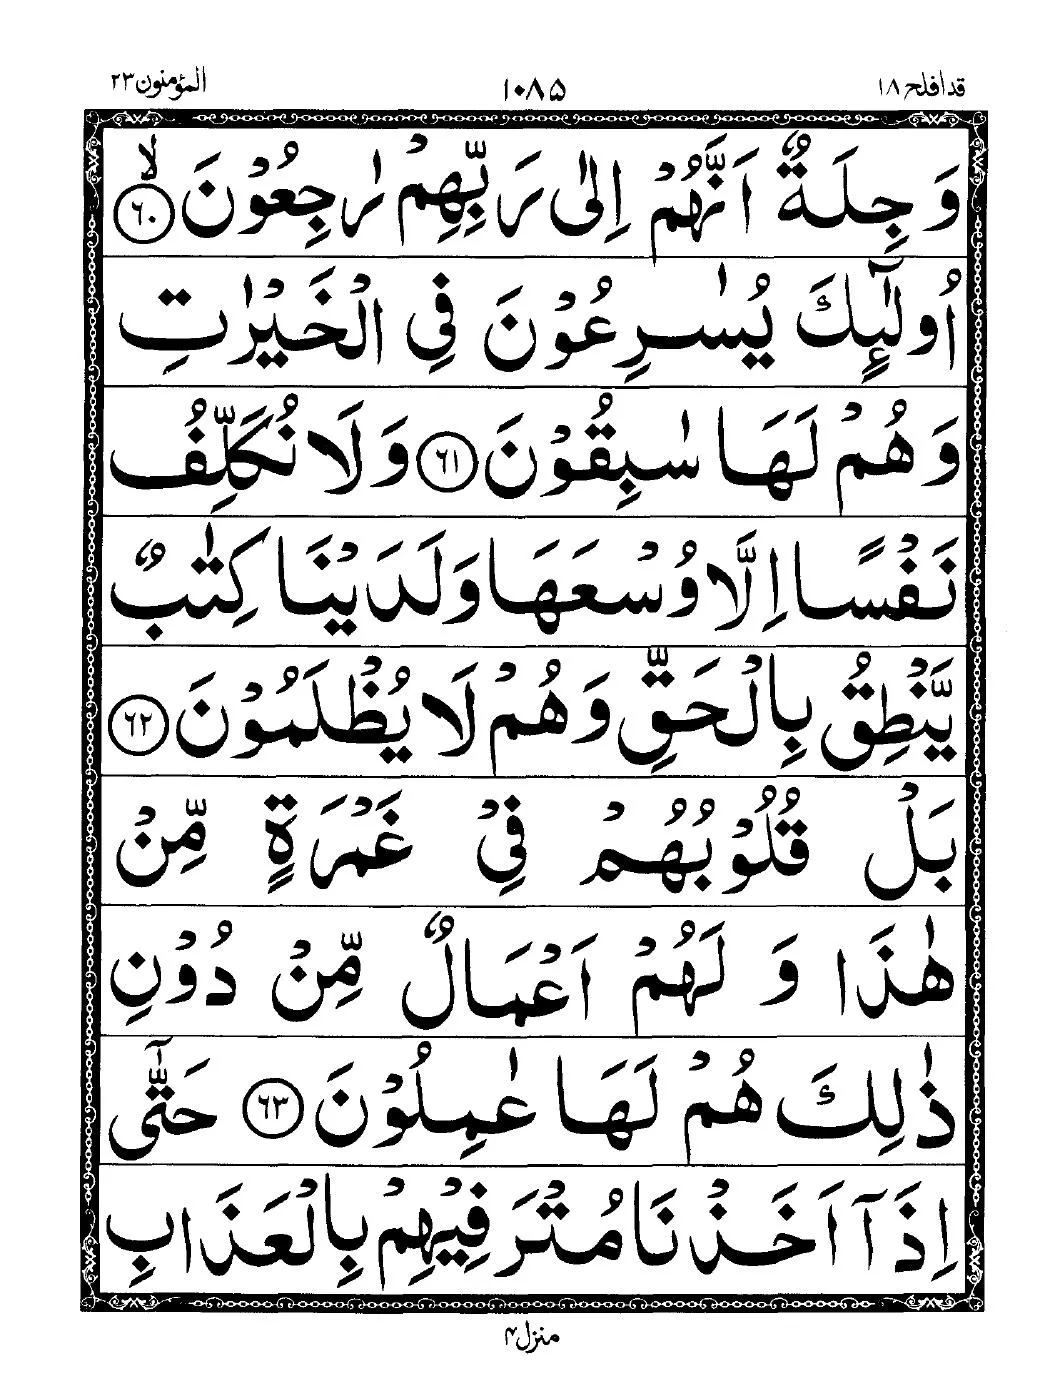 قد افلح ۱۸ ۱۰۸۵ المؤمنون ۲۳
وَجِلَةٌ اَنَّهُمْ اِلٰى رَبِّهِمْ رٰجِعُوْنَ ۙ‏﴿۶۰﴾
اُولٰٓئِكَ يُسٰرِعُوْنَ فِي الْخَيْرٰتِ
وَهُمْ لَهَا سٰبِقُوْنَ ﴿۶۱﴾ وَلَا نُكَلِّفُ
نَفْسًا اِلَّا وُسْعَهَا وَلَدَيْنَا كِتٰبٌ
يَّنْطِقُ بِالْحَقِّ وَهُمْ لَا يُظْلَمُوْنَ ﴿۶۲﴾
بَلْ قُلُوْبُهُمْ فِيْ غَمْرَةٍ مِّنْ
هٰذَا وَ لَهُمْ اَعْمَالٌ مِّنْ دُوْنِ
ذٰلِكَ هُمْ لَهَا عٰمِلُوْنَ ﴿۶۳﴾ حَتّٰٓى
اِذَآ اَخَذْنَا مُتْرَفِيْهِمْ بِالْعَذَابِ
منزل ۴